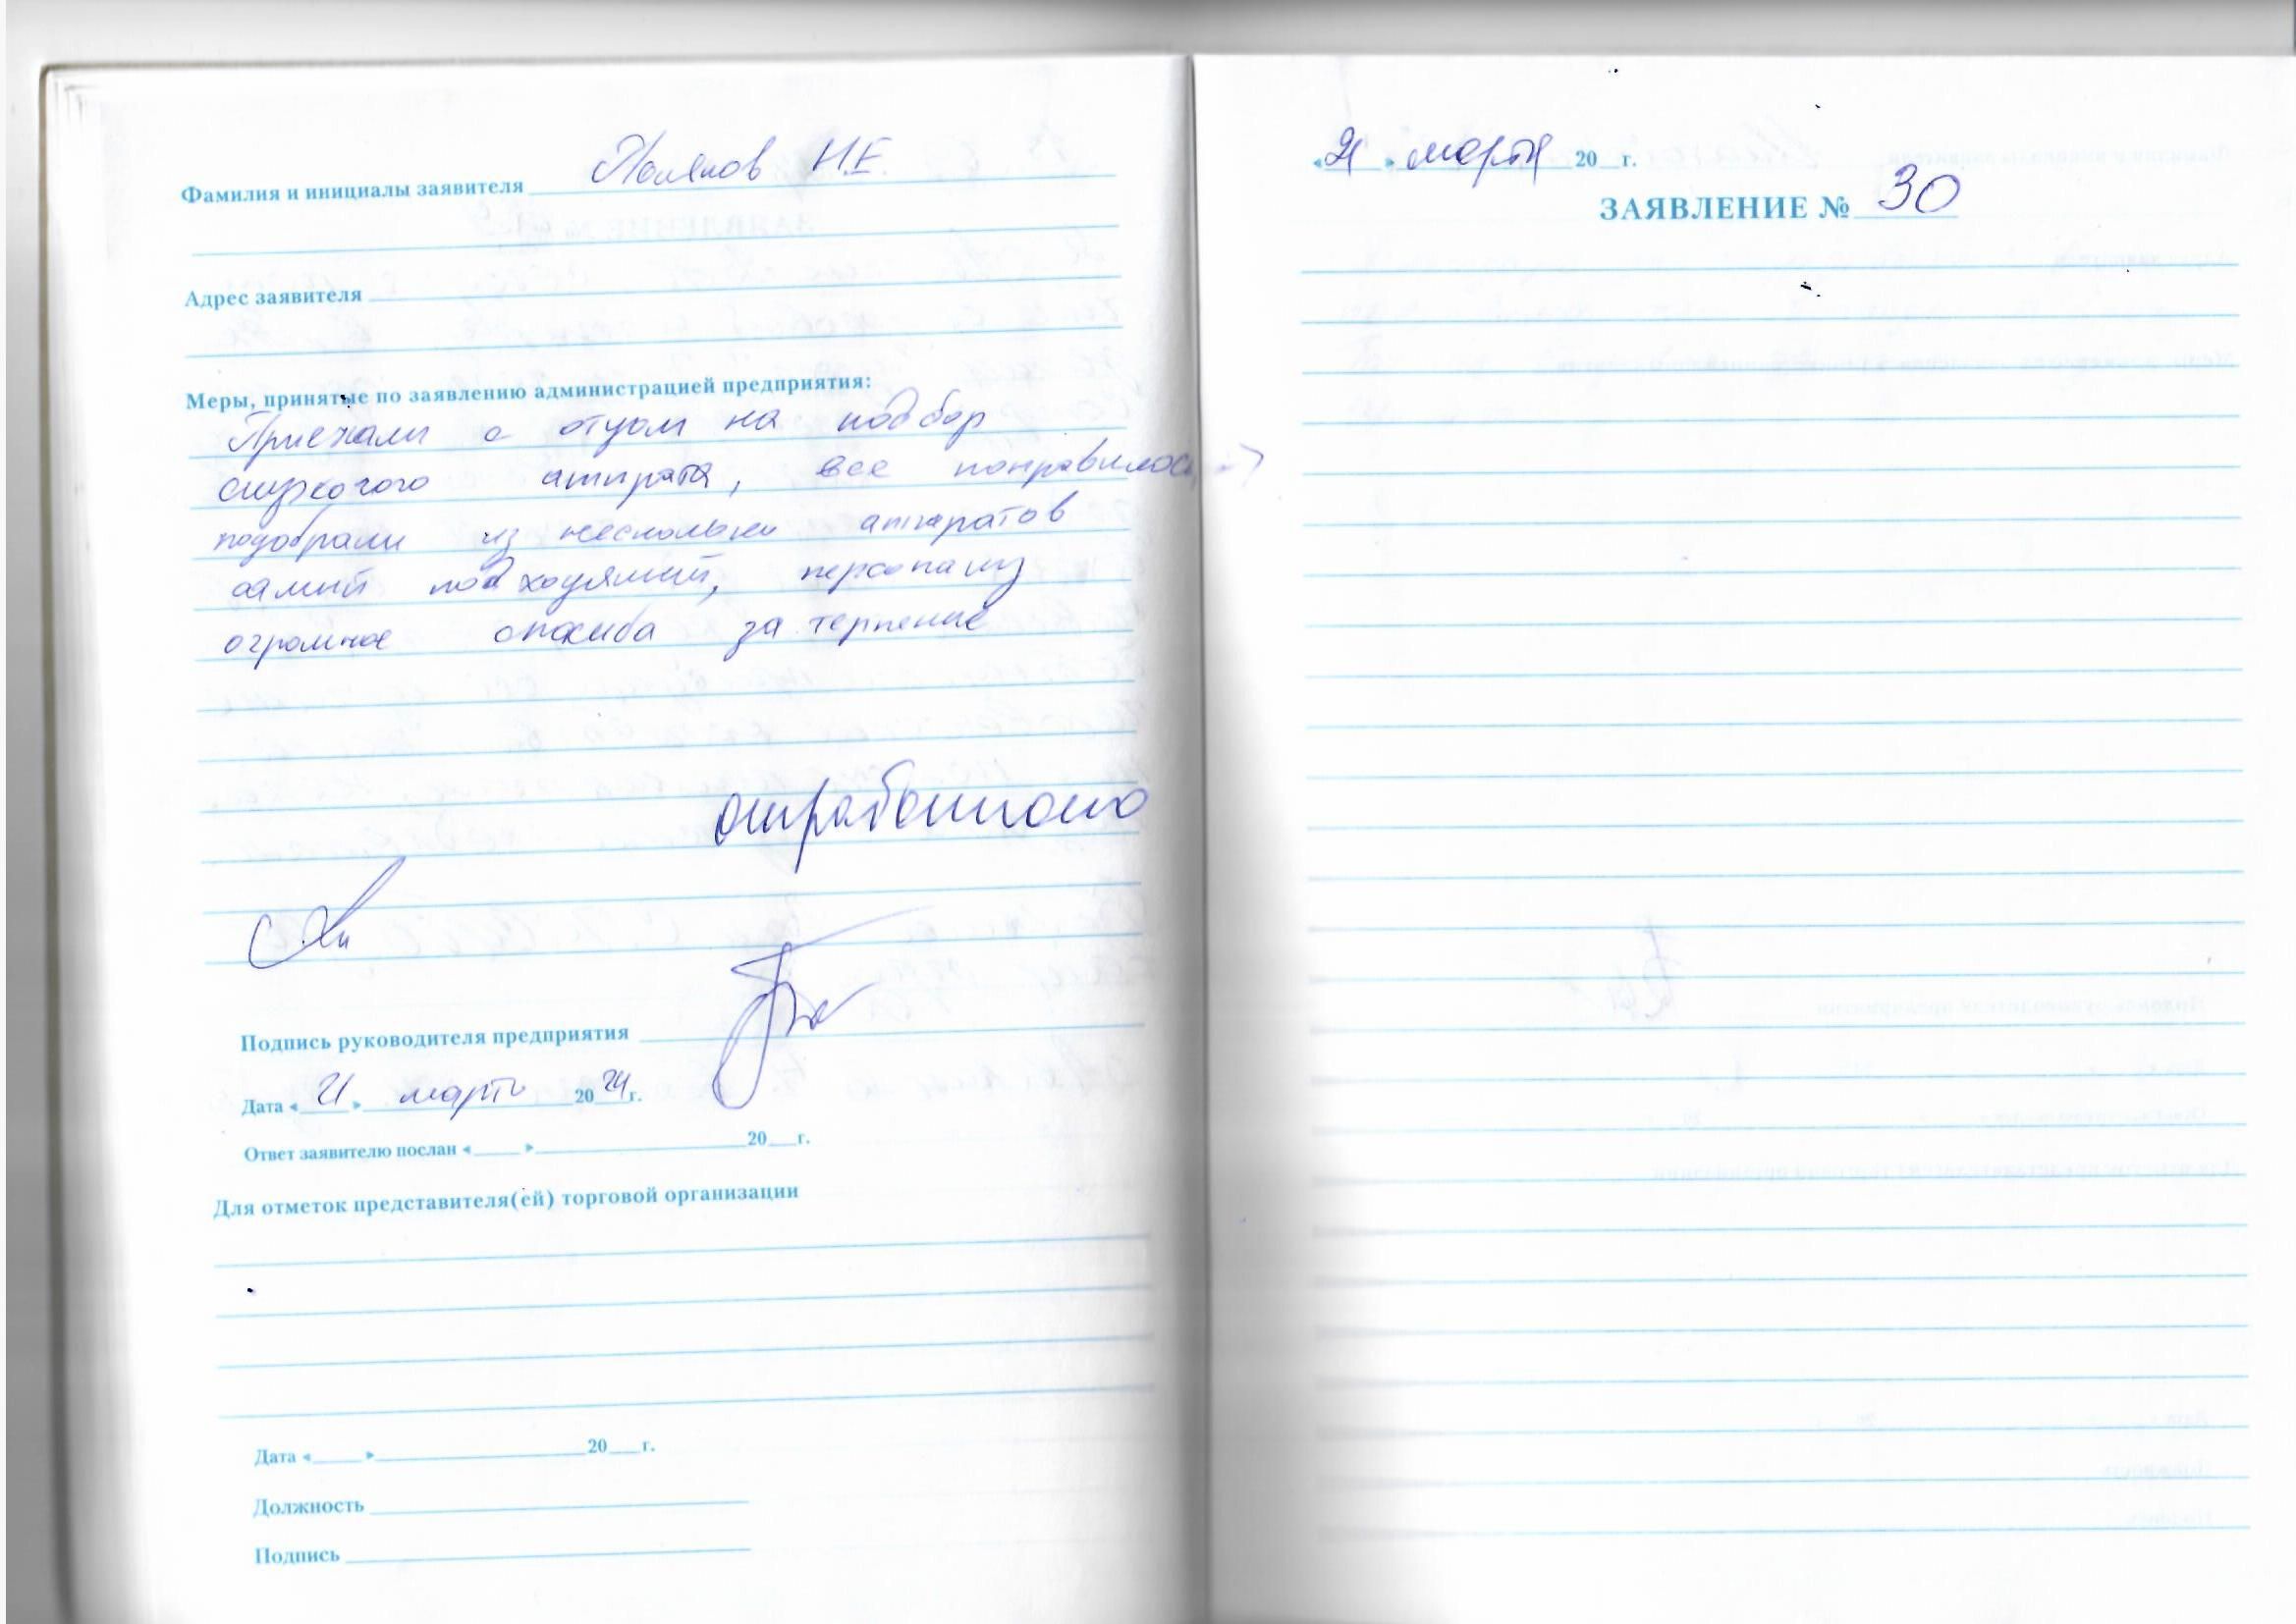 Фамилия и инициалы заявителя Поляков Н.Е.
Адрес заявителя
Меры, принятые по заявлению администрацией предприятия:
Приехали с отцом на подбор
слухового аппрата, все понравилось,
подобрали из несколько аппаратов
самый подходящий, персоналу
огромное спасиба за терпение
отработано
Подпись руководителя предприятия
Дата «21» марта 2024г.
Ответ заявителю послан «____» ____ 20__г.
Для отметок представителя(ей) торговой организации
Дата «____» ____ 20__г.
Должность
Подпись
«21» марта 20__г.
ЗАЯВЛЕНИЕ № 30